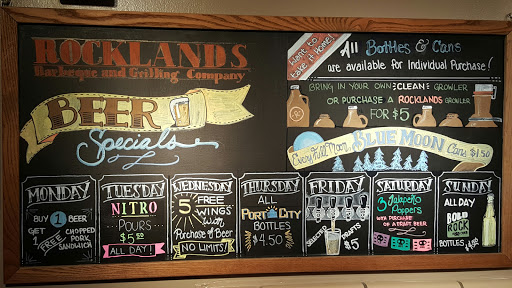 ROCKLANDS
Barbeque and Grilling Company
BEER
Specials
Want to
take it home?
All Bottles & Cans
are available for Individual Purchase!
BRING IN YOUR OWN CLEAN GROWLER
OR PURCHASE A ROCKLANDS GROWLER
FOR $5
Every Full Moon BLUE MOON Cans $1.50
MONDAY
BUY 1 BEER
GET 1 FREE CHOPPED
PORK
SANDWICH
TUESDAY
NITRO
POURS
$5.50
ALL DAY!
WEDNESDAY
5 FREE
WINGS
With
Purchase of Beer
NO LIMITS!
THURSDAY
ALL
PORT CITY
BOTTLES
$4.50
FRIDAY
SELECTED DRAFTS
$5
SATURDAY
3 Jalapeño
Poppers
WITH PURCHASE
OF A DRAFT BEER
SUNDAY
ALL DAY
BOLD
ROCK
BOTTLES
$4.00